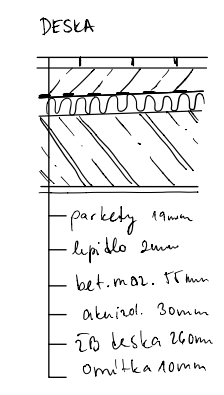 DESKA
parkety 19mm
lepidlo 2mm
bet. maz. 55mm
akuizol. 30mm
ŽB deska 260mm
omítka 10mm